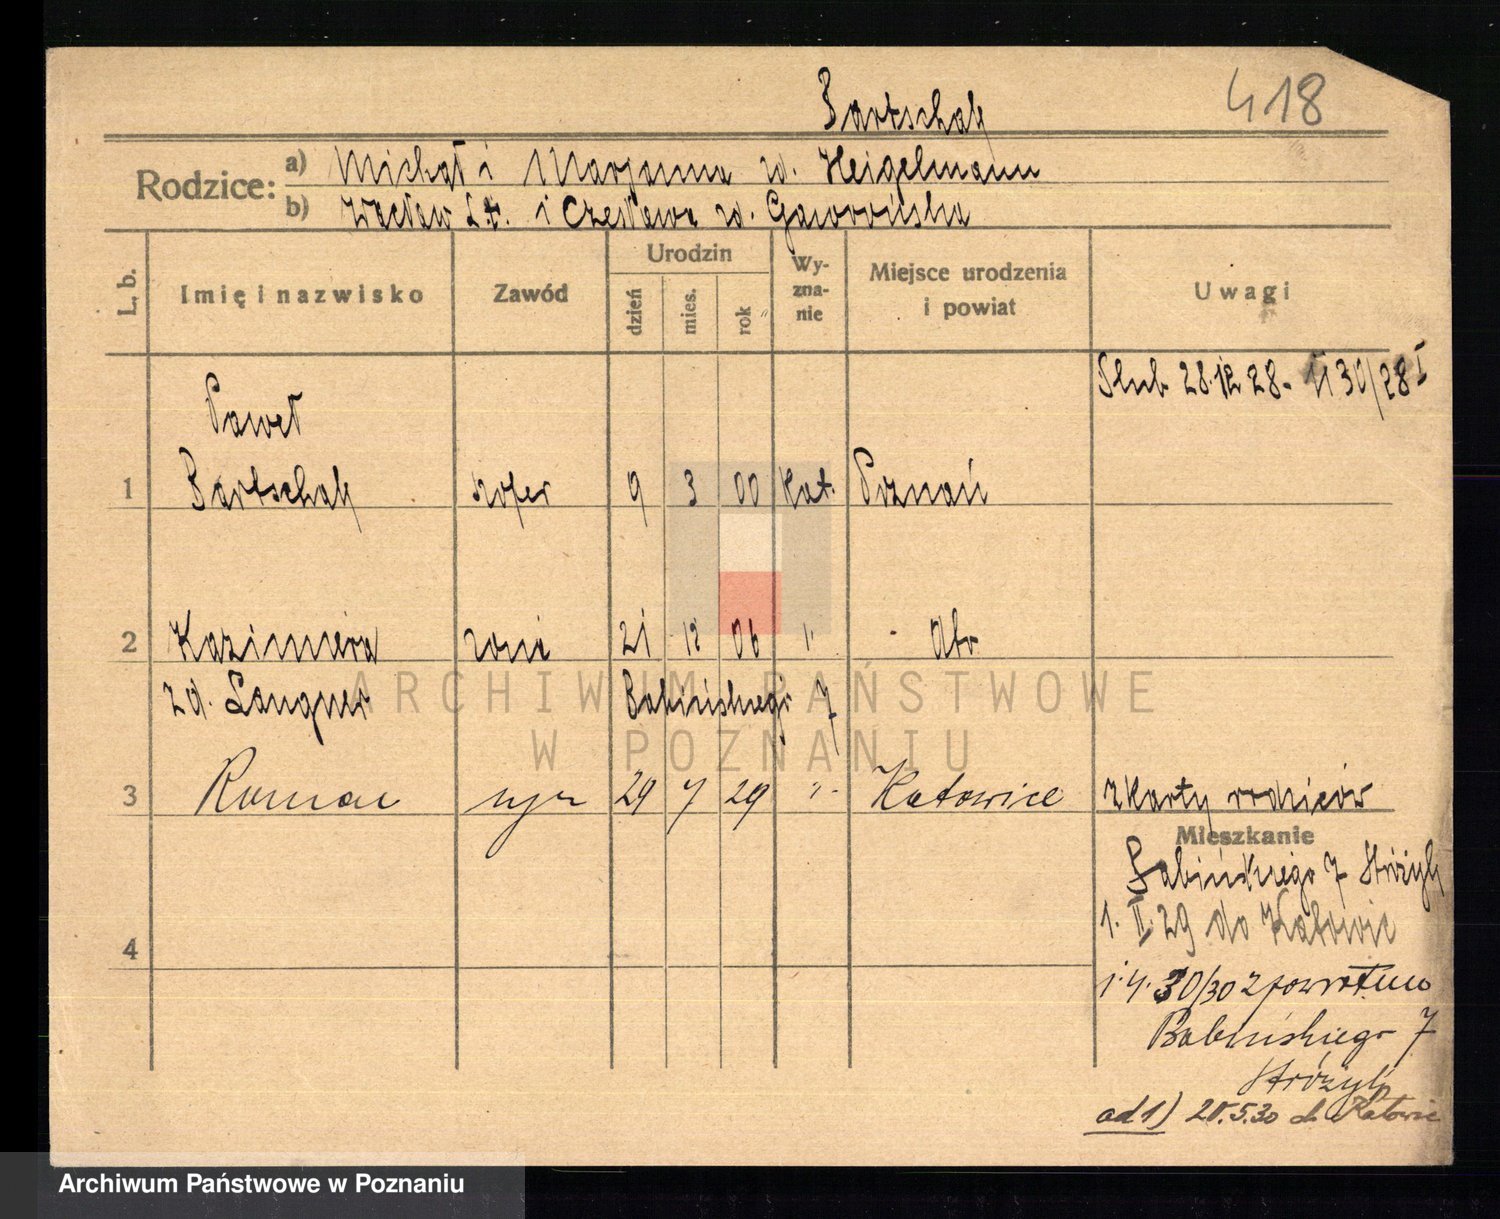 418
Bartschak
Rodzice:
a) Michał i Marjanna zd. Heigelmann
b) Wacław i Czesława zd. Gaworońska
L. b.
Imię i nazwisko
Zawód
Urodzin
dzień
mies.
rok
Wy-
zna-
nie
Miejsce urodzenia
i powiat
Uwagi
Ślub 28.12 28 - 1130/28 I
Paweł
1 Bartschak szofer 9 3 00 kat. Poznań
2 Kazimiera żona 21 12 06 "
zd. Langner Babińskiego 7
3 Roman syn 29 7 29 " Katowice z karty rodziców
Mieszkanie
Babińskiego 7 Stróżyk
1. II 29 do Katowic
4
1.4.30/30 z powrotem
Babińskiego 7
Stróżyk
ad 1) 5.30 do Katowic
ARCHIWUM PAŃSTWOWE
W POZNANIU
Archiwum Państwowe w Poznaniu